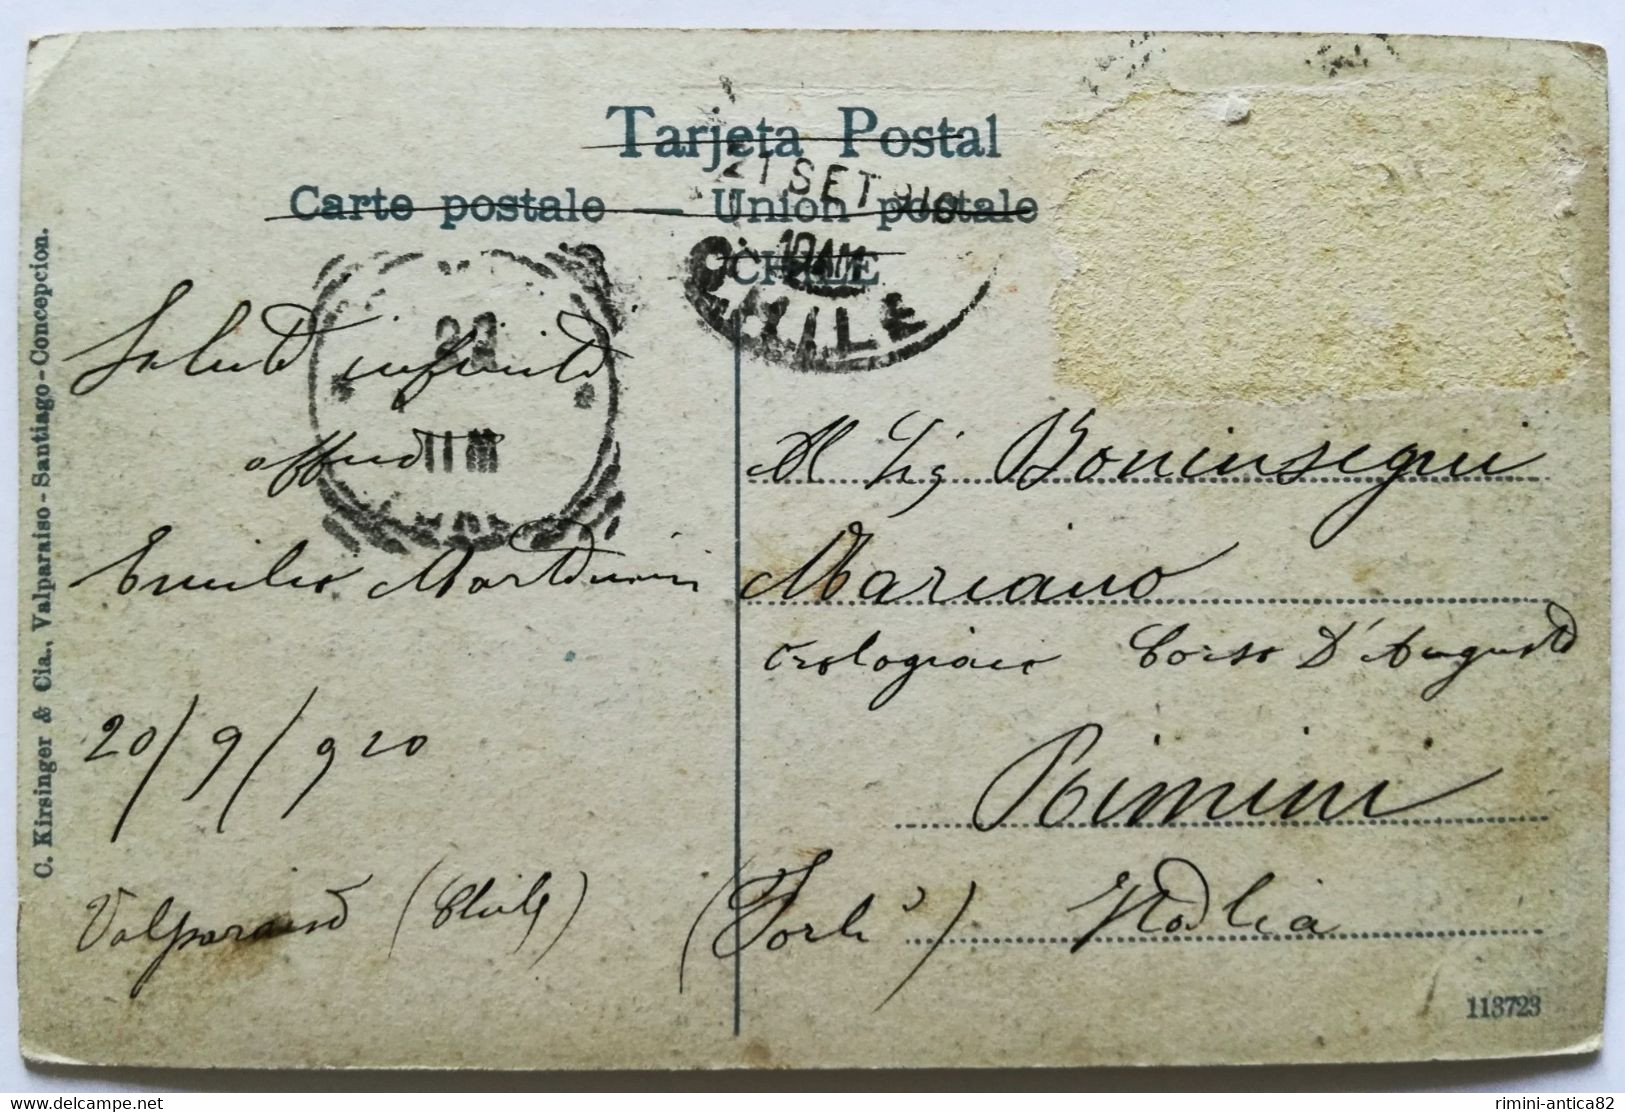 Tarjeta Postal
Carte postale — Union postale
CHILE
21 SET 910
10 AM
CHILE
C. Kirsinger & Cia., Valparaiso - Santiago - Concepcion.
Saluti infiniti
22
Emilio Martinini
20/9/910
Valparaiso (Chile)
Al Sig Boninsegni
Mariano
orologiaio Corso D'Augusto
Rimini
(Forlì) Italia
113723
rimini-antica82
delcampe.net